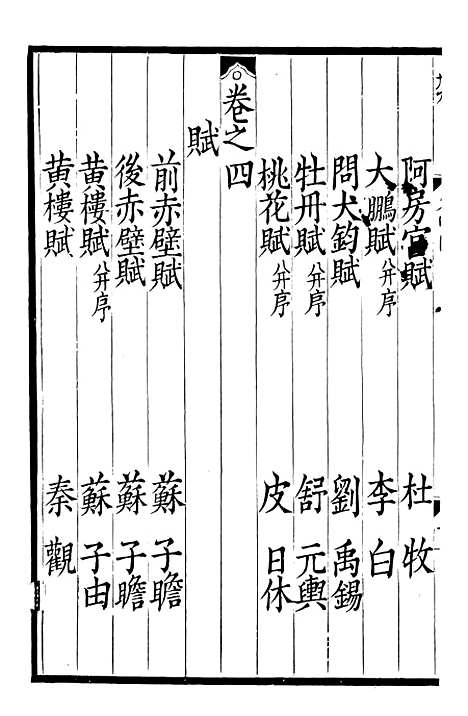 阿房宮賦 杜牧
大鵬賦 八并序 李白
問大鈞賦 劉禹錫
牡丹賦 八并序 舒元輿
桃花賦 八并序 皮日休
卷之四
賦
前赤壁賦 蘇子瞻
後赤壁賦 蘇子瞻
黄樓賦 八并序 蘇子由
黄樓賦 秦觀